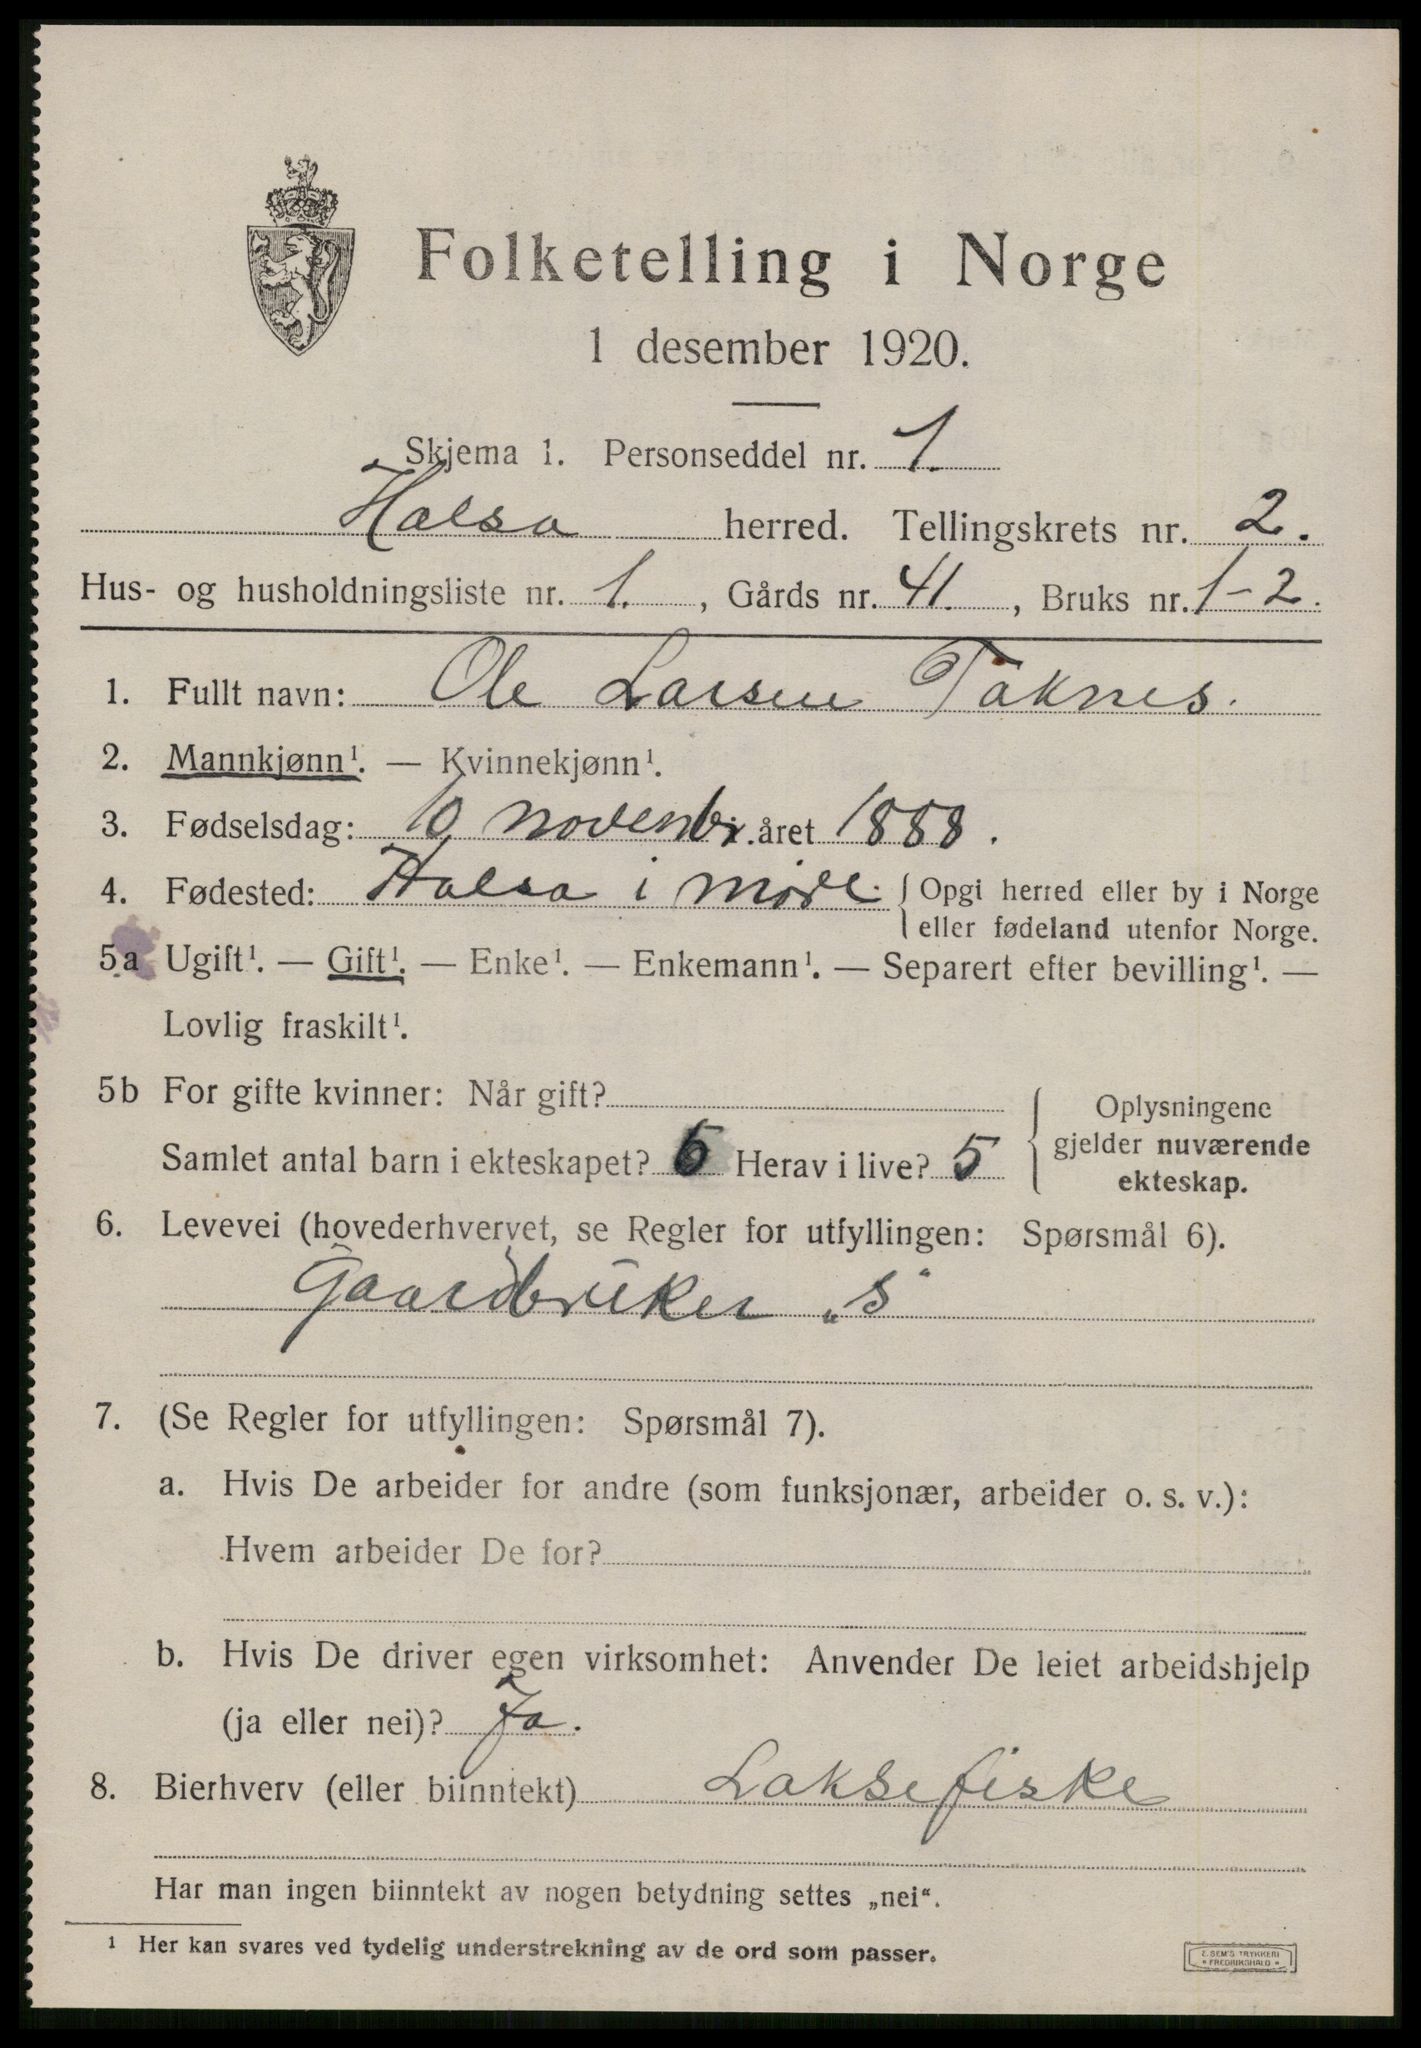 Folketelling i Norge
1 desember 1920.
Skjema 1. Personseddel nr. 1.
Halsa herred. Tellingskrets nr. 2.
Hus- og husholdningsliste nr. 1., Gårds nr. 41., Bruks nr. 1-2.
1. Fullt navn: Ole Larsen Taknes.
2. Mannkjønn¹. — Kvinnekjønn¹.
3. Fødselsdag: 10 novembr. året 1888.
4. Fødested: Halsa i Møre. { Opgi herred eller by i Norge
eller fødeland utenfor Norge.
5a Ugift¹. — Gift¹. — Enke¹. — Enkemann¹. — Separert efter bevilling¹. —
Lovlig fraskilt¹.
5b For gifte kvinner: Når gift?
Samlet antal barn i ekteskapet? 5 Herav i live? 5
{ Oplysningene
gjelder nuværende
ekteskap.
6. Levevei (hovederhvervet, se Regler for utfyllingen: Spørsmål 6).
Gaardbruker „S“
7. (Se Regler for utfyllingen: Spørsmål 7).
a. Hvis De arbeider for andre (som funksjonær, arbeider o. s. v.):
Hvem arbeider De for?
b. Hvis De driver egen virksomhet: Anvender De leiet arbeidshjelp
(ja eller nei)? Ja.
8. Bierhverv (eller biinntekt) Laksefiske
Har man ingen biinntekt av nogen betydning settes „nei“.
¹ Her kan svares ved tydelig understrekning av de ord som passer.
E. SEM'S TRYKKERI
FREDRIKSHALD